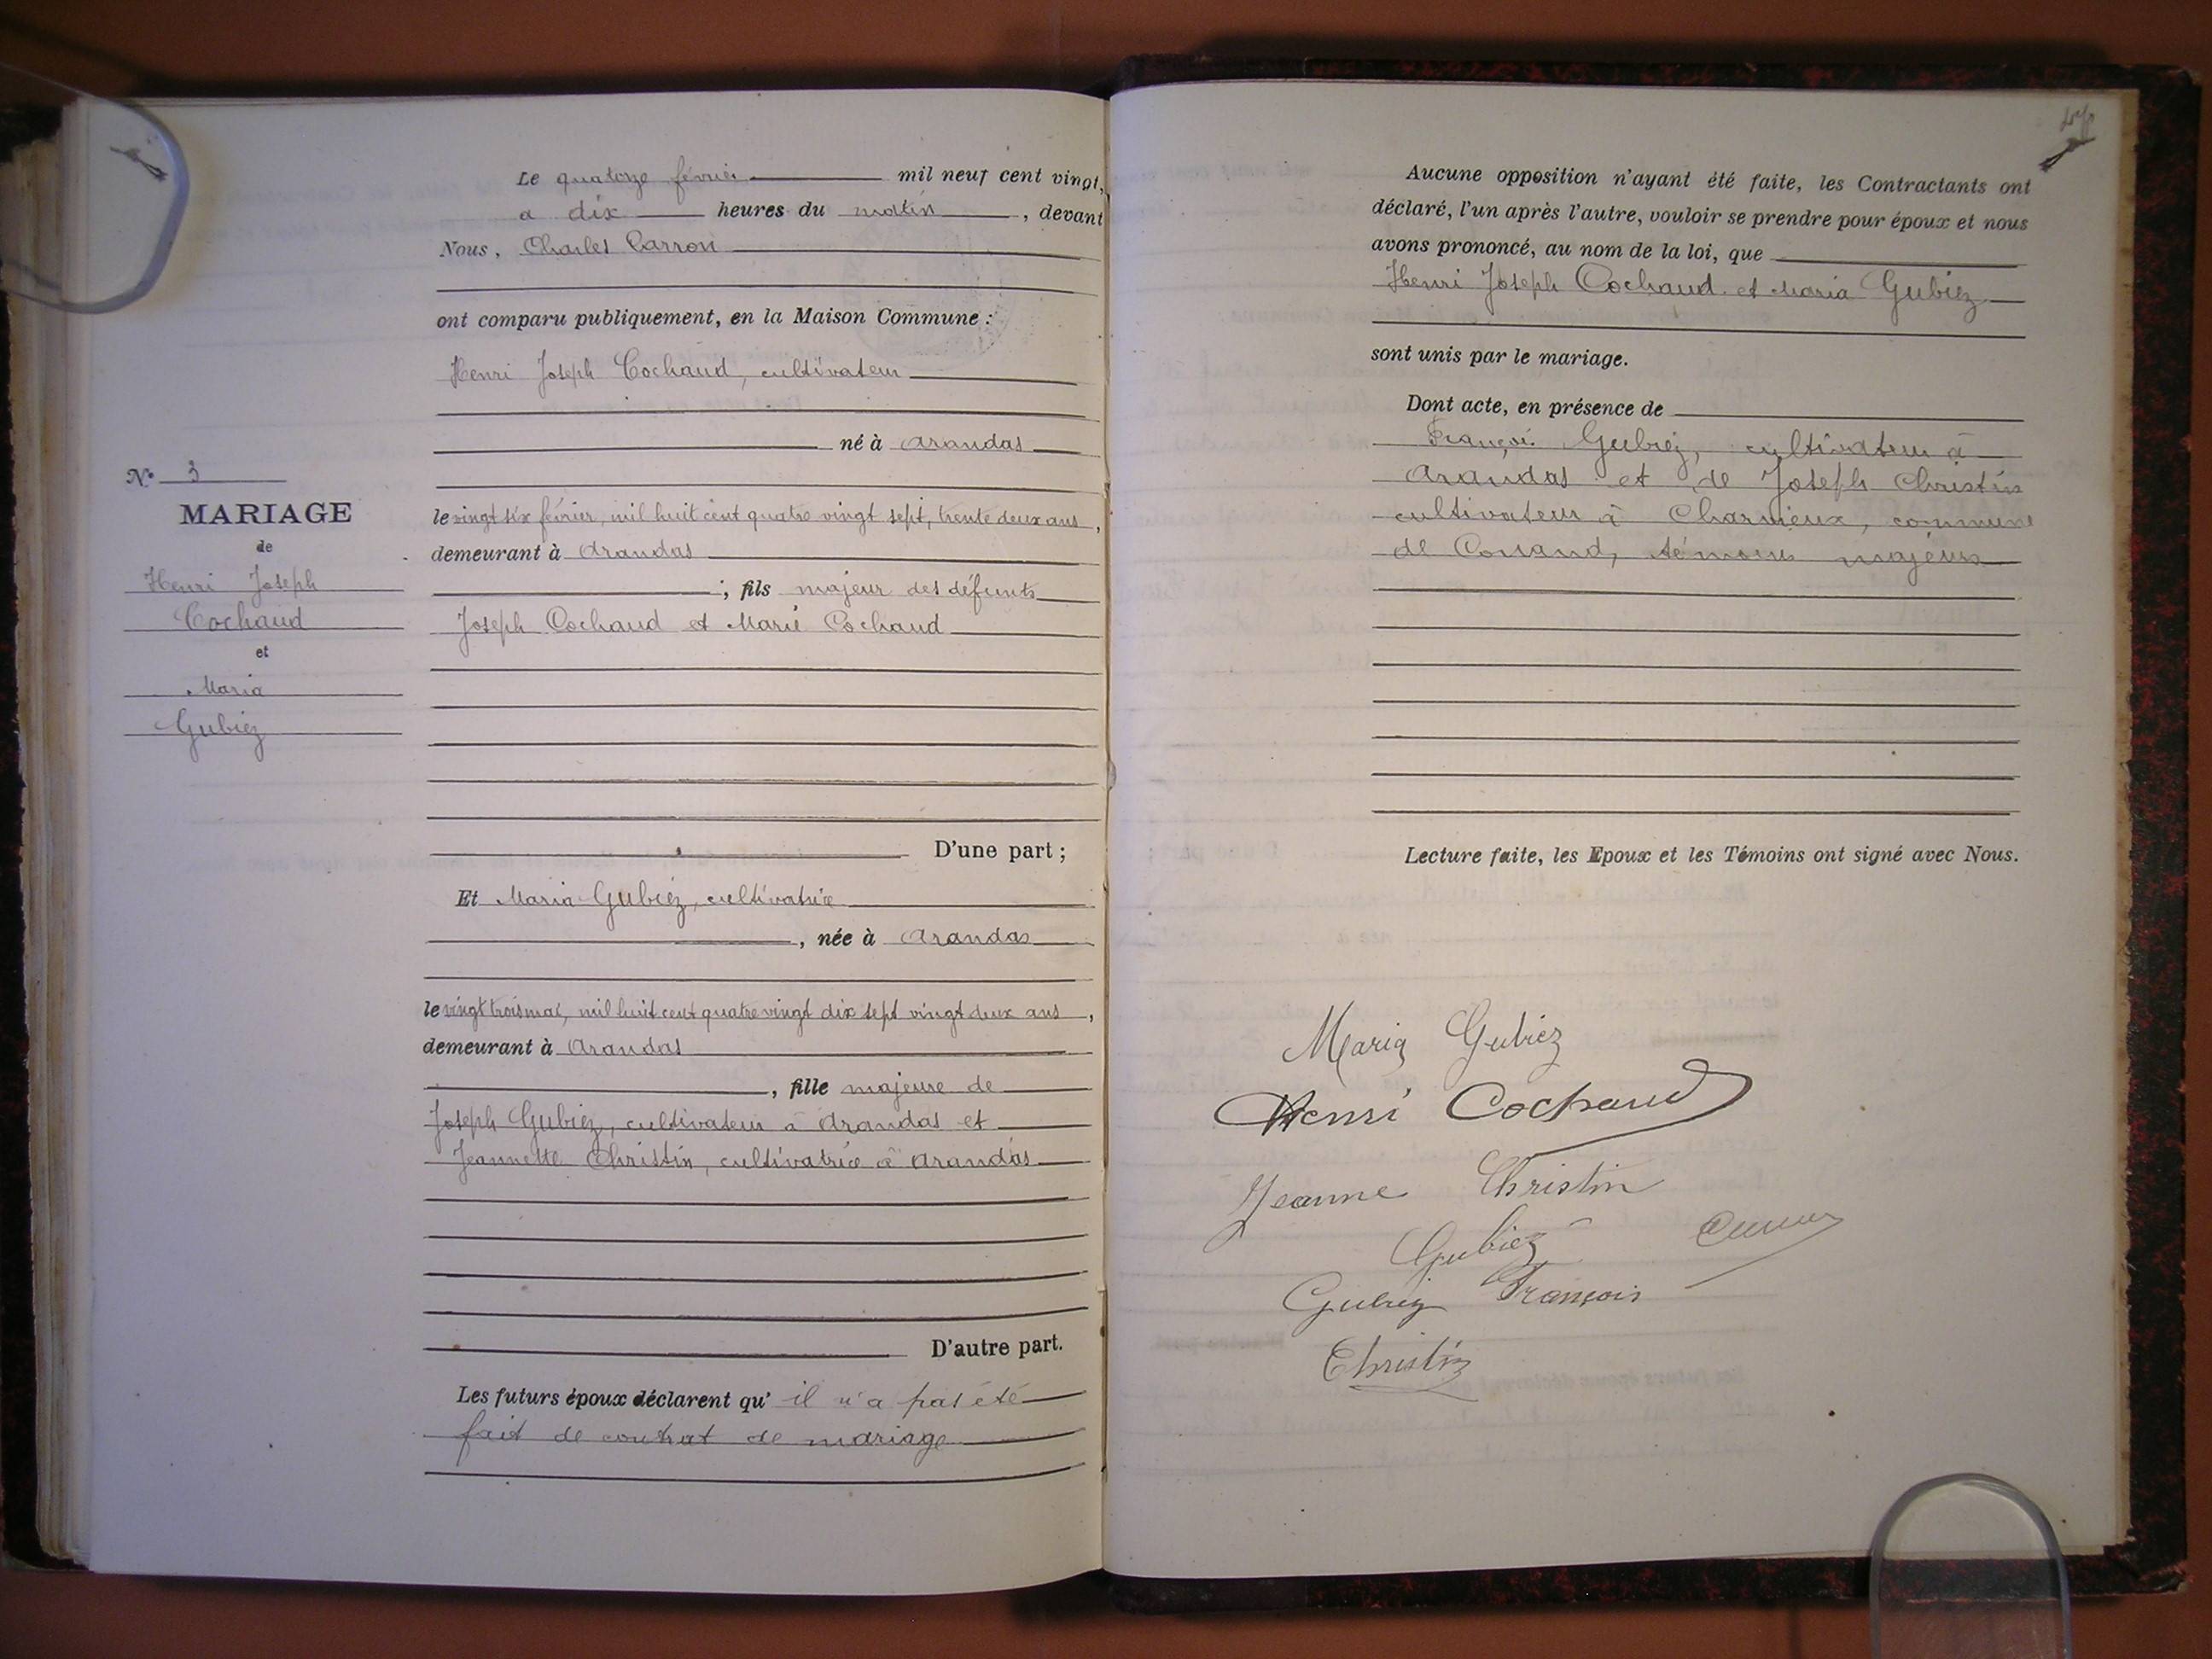 Le quatorze février mil neuf cent vingt,
a dix heures du matin, devant
Nous, Charles Carron
ont comparu publiquement, en la Maison Commune :
Henri Joseph Cochaud, cultivateur
né à Arandas
le vingt six février, mil huit cent quatre vingt sept, trente deux ans,
demeurant à Arandas
; fils majeur des défunts
Joseph Cochaud et Marie Cochaud
D'une part ;
Et Maria Gubiez, cultivatrice
, née à Arandas
le vingt trois mai, mil huit cent quatre vingt dix sept vingt deux ans,
demeurant à Arandas
, fille majeure de
Joseph Gubiez, cultivateur à Arandas et
Jeannette Christin, cultivatrice à Arandas
D'autre part.
Les futurs époux déclarent qu' il n'a pas été
fait de contrat de mariage
N° 3
MARIAGE
de
Henri Joseph
Cochaud
et
Maria
Gubiez
Aucune opposition n'ayant été faite, les Contractants ont
déclaré, l'un après l'autre, vouloir se prendre pour époux et nous
avons prononcé, au nom de la loi, que
Henri Joseph Cochaud et Maria Gubiez
sont unis par le mariage.
Dont acte, en présence de
François Gubiez, cultivateur à
Arandas et de Joseph Christin
cultivateur à Charvieux, commune
de Conand, témoins majeurs
Lecture faite, les Epoux et les Témoins ont signé avec Nous.
Maria Gubiez
Henri Cochaud
Jeanne Christin
Gubiez
Gubiez François
Christin